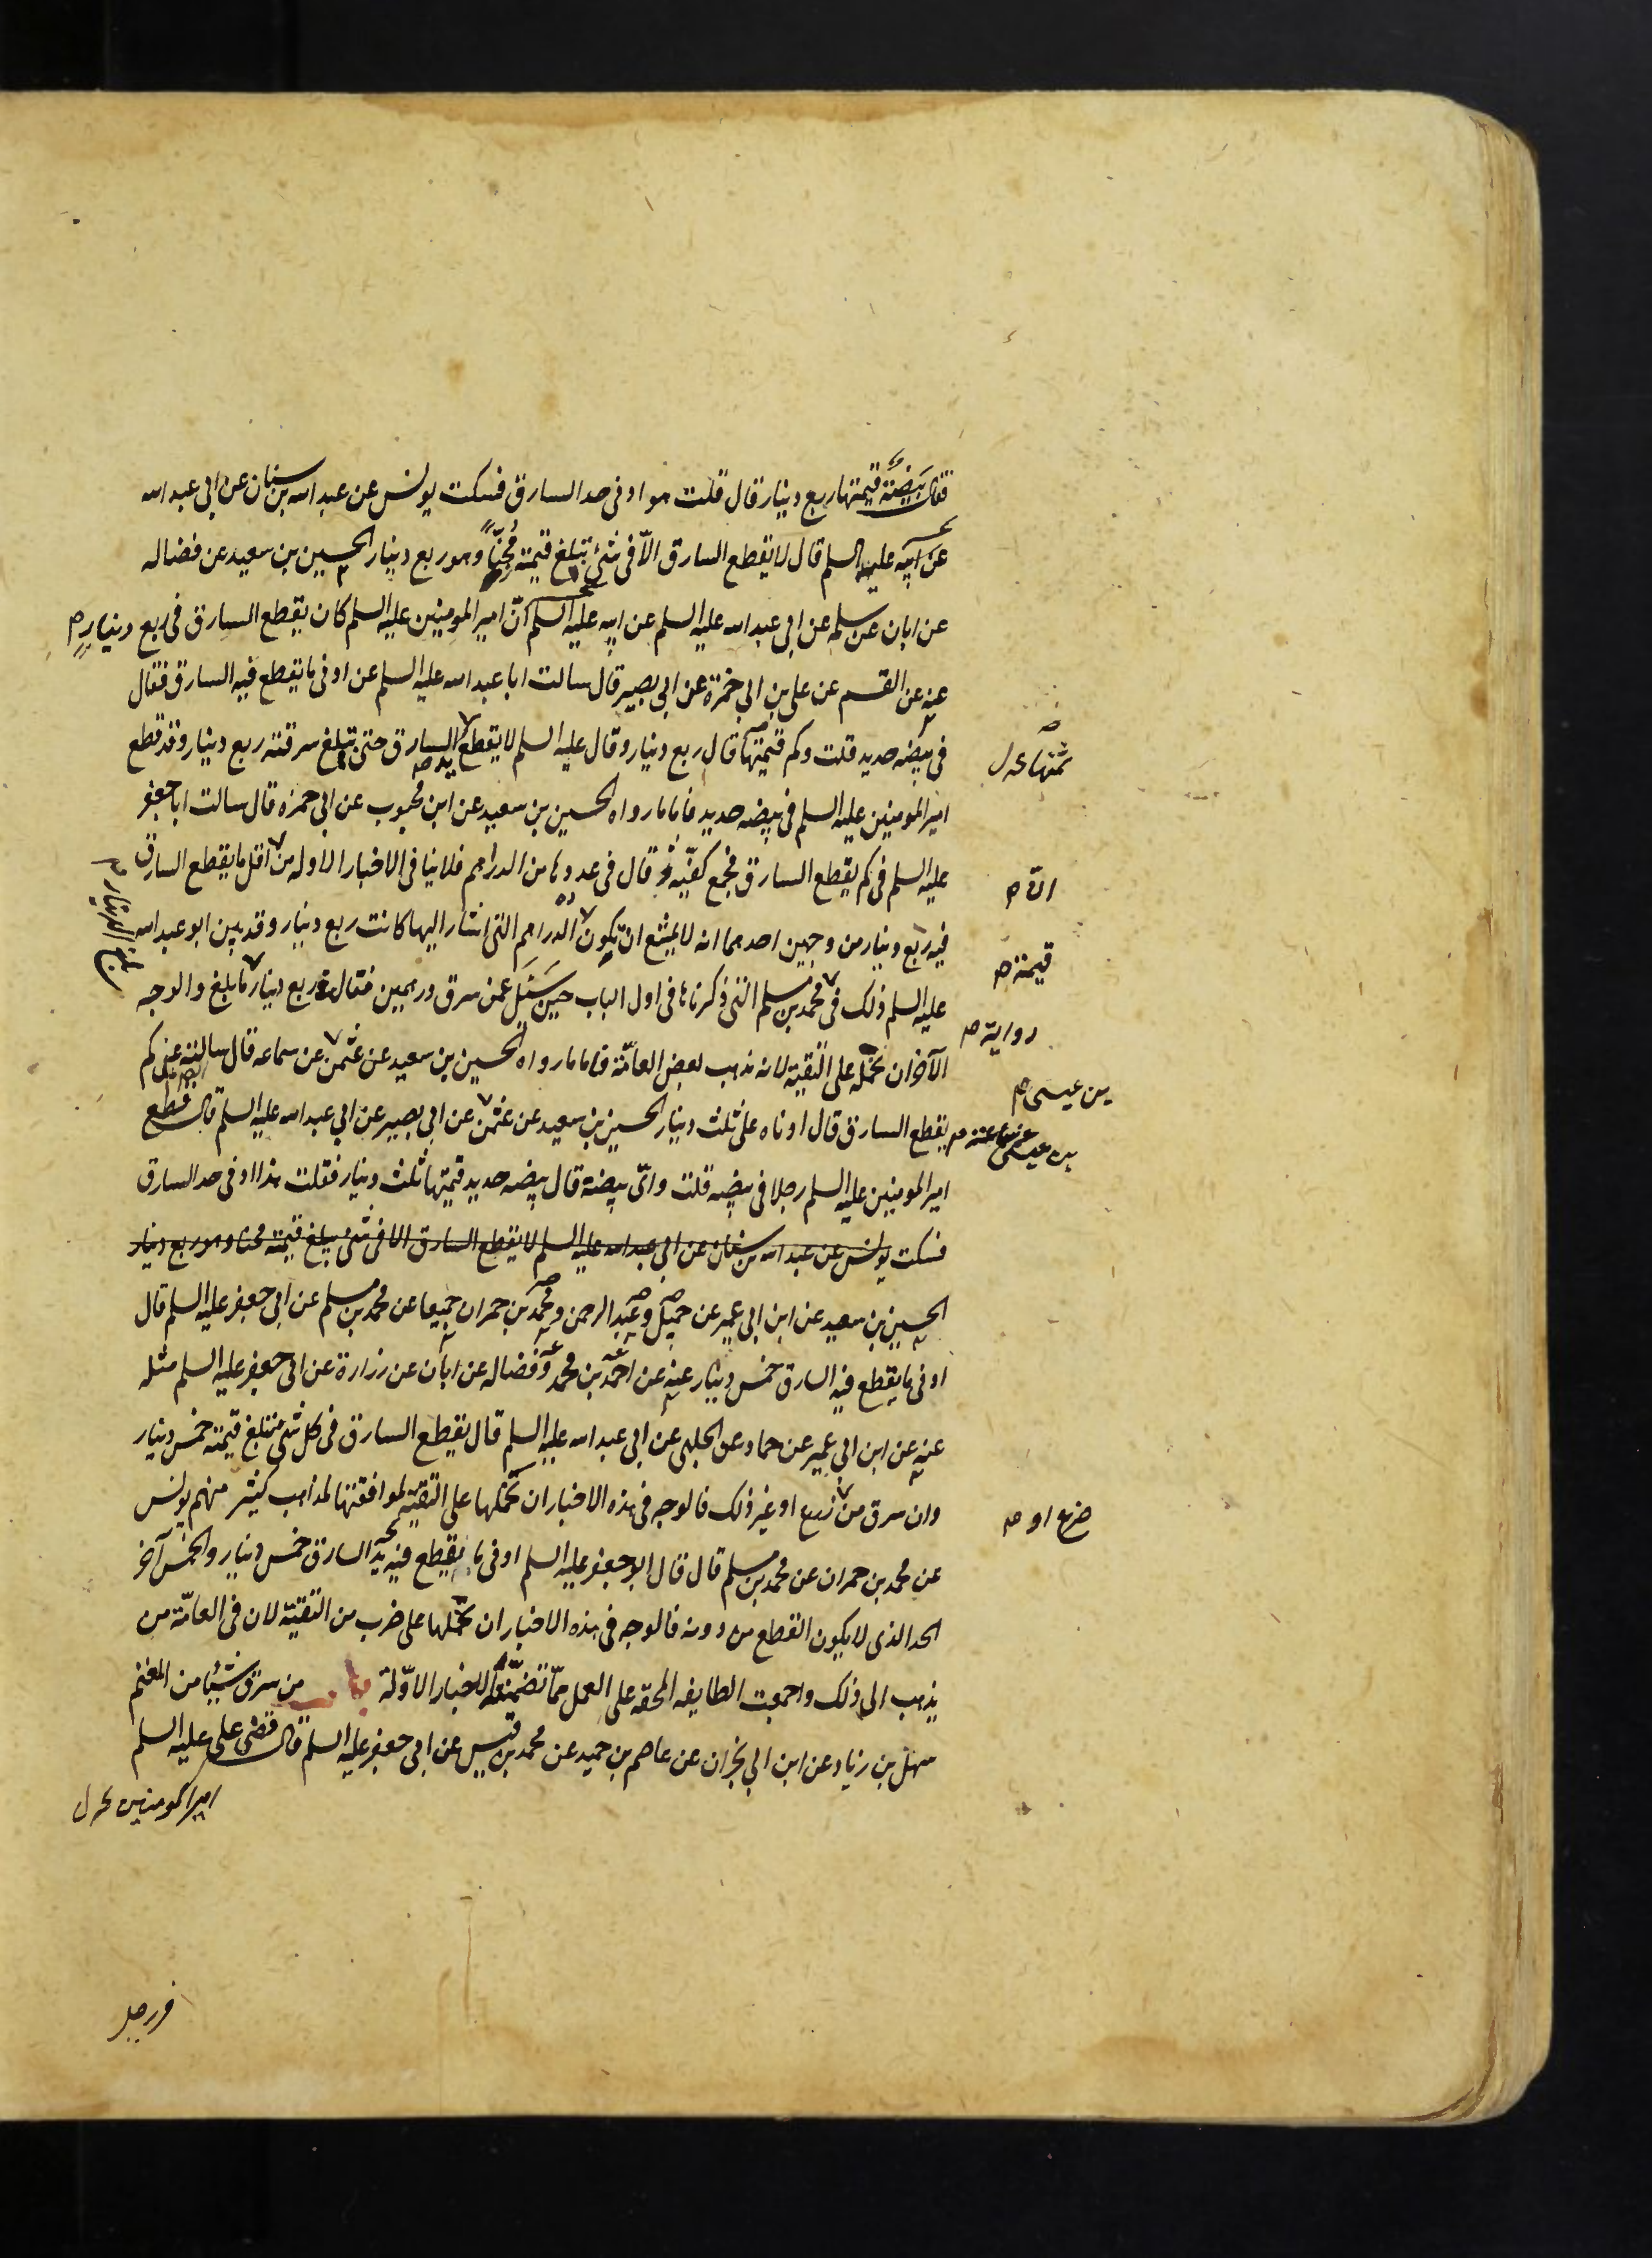 فقال بيضة قيمتها ربع دينار قال قلت هو ادنى حد السارق فسكت يونس عن عبد الله بن سنان عن ابي عبد الله
عن ابيه عليه السلم قال لا يقطع السارق الّا في شئ تبلغ قيمته مجنّاً وهو ربع دينار الحسين بن سعيد عن فضاله
عن ابان عن سلمه عن ابي عبد الله عليه السلم عن ابيه عليه السلم انّ امير المومنين عليه السلم كان يقطع السارق في ربع دينار
عنه عن القسم عن علي بن ابي حمزة عن ابي بصير قال سالت ابا عبد الله عليه السلم عن ادنى ما يقطع فيه السارق فقال
في بيضه حديد قلت وكم قيمتها قال ربع دينار وقال عليه السلم لا يقطع السارق حتى تبلغ سرقته ربع دينار وقد قطع
ثمنها
يد
امير المومنين عليه السلم في بيضه حديد فاما ما رواه الحسين بن سعيد عن ابن محبوب عن ابي حمزه قال سالت ابا جعفر
عليه السلم في كم يقطع السارق فجمع كفيّه ثم قال في عددها من الدراهم فلا ينافي الاخبار الاوله من اقل ما يقطع السارق
انّ
فيه ربع دينار من وجهين احدهما انه لا يمتنع ان تكون الدراهم التي اشار اليها كانت ربع دينار وقد بين ابو عبد الله
قيمة
عليه السلم ذلك في محمد بن مسلم التي ذكرناها في اول الباب حين سئل عمن سرق درهمين فقال في ربع دينار ما بلغ والوجه
رواية
الآخر ان نحمله على التقيّة لانه مذهب لبعض العامّة فاما ما رواه الحسين بن سعيد عن عثمن عن سماعه قال سالته على كم
بن عيسى
يقطع السارق قال ادناه على ثلث دينار الحسين بن سعيد عن عثمن عن ابي بصير عن ابي عبد الله عليه السلم قال قطع
بن عيسى عن سماعه
امير المومنين عليه السلم رجلا في بيضه قلت وايّ بيضة قال بيضه حديد قيمتها ثلث دينار فقلت هذا ادنى حد السارق
فسكت يونس عن عبد الله بن سنان عن ابي عبد الله عليه السلم لا يقطع السارق الا في شئ تبلغ قيمته مجنا وهو ربع دينار
الحسين بن سعيد عن ابن ابي عمير عن جميل وعبد الرحمن ومحمد بن حمران جميعا عن محمد بن مسلم عن ابي جعفر عليه السلم قال
ادنى ما يقطع فيه السارق خمس دينار عنه عن احمد بن محمد وفضاله عن ابان عن زرارة عن ابي جعفر عليه السلم مثله
عنه عن ابن ابي عمير عن حماد عن الحلبي عن ابي عبد الله عليه السلم قال يقطع السارق في كل شئ تبلغ قيمته خمس دينار
وان سرق من زرع او غير ذلك فالوجه في هذه الاخبار ان نحملها على التقيّة لموافقتها لمذاهب كثير منهم يونس
ضرع او
عن محمد بن حمران عن محمد بن مسلم قال قال ابو جعفر عليه السلم ادنى ما يقطع فيه يد السارق خمس دينار والخمس آخر
الحد الذي لا يكون القطع من دونه فالوجه في هذه الاخبار ان نحملها على ضرب من التقيّة لان في العامّة من
يذهب الى ذلك واجمعت الطايفه المحقه على العمل بما تضمنته الاخبار الاوّلة باب من سرق شيئا من المغنم
سهل بن زياد عن ابن ابي نجران عن عاصم بن حميد عن محمد بن قيس عن ابي جعفر عليه السلم قال قضى علي عليه السلم
امير المومنين
في رجل